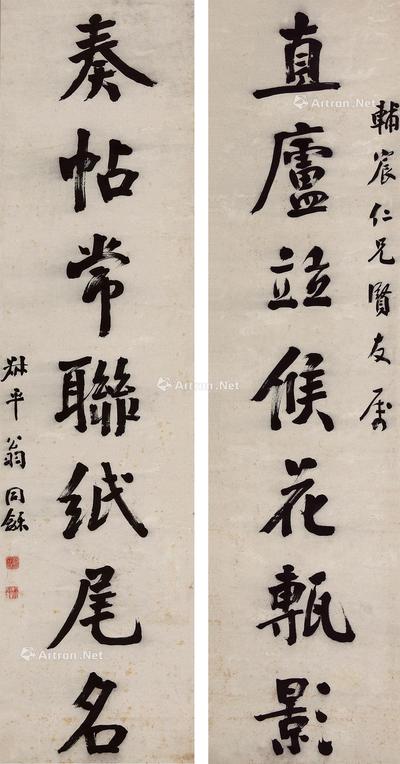 輔宸仁兄賢友屬
直廬竝候花甎影
奏帖常聯紙尾名
叔平翁同龢
Artron.Net
Artron.Net
Artron.Net
Artron.Net
Artron.Net